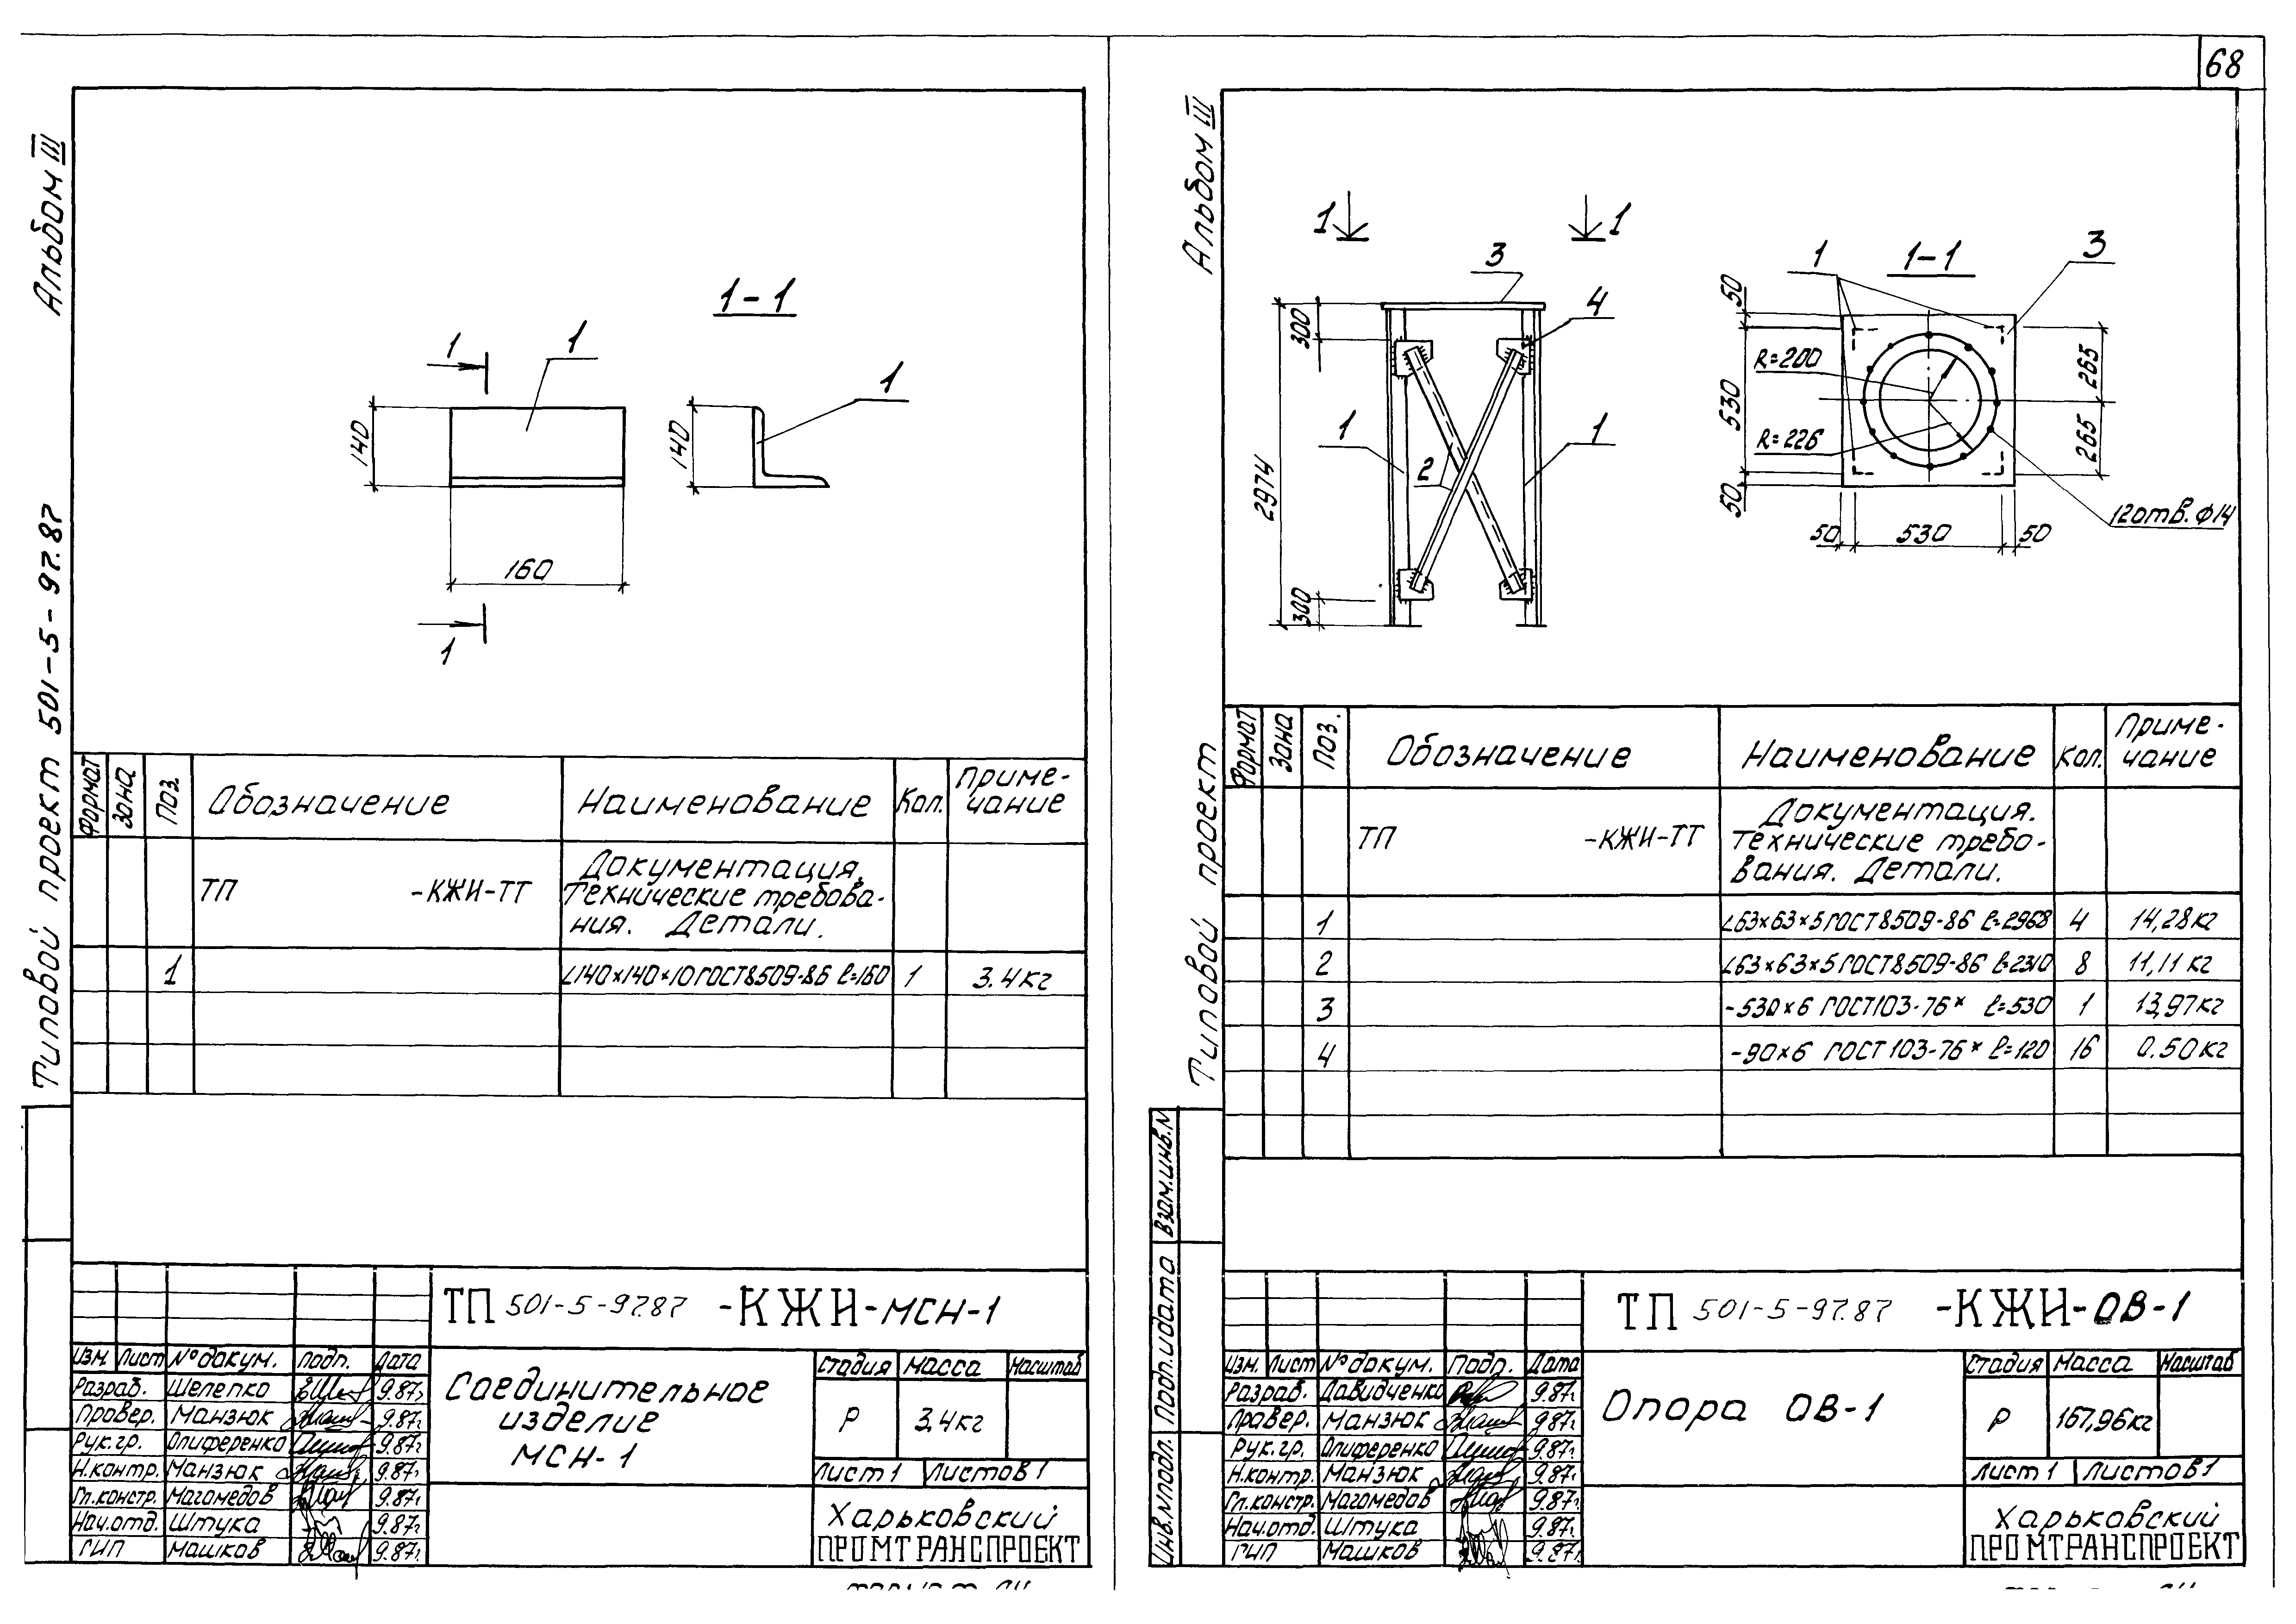 68
Альбом III
Типовой проект 501-5-97.87
1-1
1
1
1
1
140
140
160
Формат
Зона
Поз.
Обозначение
Наименование
Кол.
Приме-
чание
Документация.
ТП -КЖИ-ТТ
Технические требова-
ния. Детали.
1 L140×140×10 ГОСТ8509-86 ℓ=160 1 3.4кг
ТП 501-5-97.87 -КЖИ-МСН-1
Изм. Лист № докум. Подп. Дата
Разраб. Шелепко 9.87г.
Провер. Манзюк 9.87г.
Рук.гр. Олиференко 9.87г.
Н.контр. Манзюк 9.87г.
Гл.констр. Магомедов 9.87г.
Нач.отд. Штука 9.87г.
ГИП Машков 9.87г.
Соединительное
изделие
МСН-1
Стадия Масса Масштаб
Р 3,4кг
Лист 1 Листов 1
Харьковский
ПРОМТРАНСПРОЕКТ
Альбом III
Типовой проект
1 1
3
4
300
2974
300
1
2
1
1-1
1
3
50
530
50
R=200
R=226
265
265
12отв.ф14
50 530 50
Формат
Зона
Поз.
Обозначение
Наименование
Кол.
Приме-
чание
Документация.
ТП -КЖИ-ТТ
Технические требо-
вания. Детали.
1 L63×63×5 ГОСТ8509-86 ℓ=2968 4 14,28кг
2 L63×63×5 ГОСТ8509-86 ℓ=2310 8 11,11кг
3 -530×6 ГОСТ103-76* ℓ=530 1 13,97кг
4 -90×6 ГОСТ103-76* ℓ=120 16 0.50кг
Взам.инв.N
Подп.и дата
Инв.N подл.
ТП 501-5-97.87 -КЖИ-ОВ-1
Изм. Лист № докум. Подп. Дата
Разраб. Давидченко 9.87г.
Провер. Манзюк 9.87г.
Рук.гр. Олиференко 9.87г.
Н.контр. Манзюк 9.87г.
Гл.констр. Магомедов 9.87г.
Нач.отд. Штука 9.87г.
ГИП Машков 9.87г.
Опора ОВ-1
Стадия Масса Масштаб
Р 167,96кг
Лист 1 Листов 1
Харьковский
ПРОМТРАНСПРОЕКТ